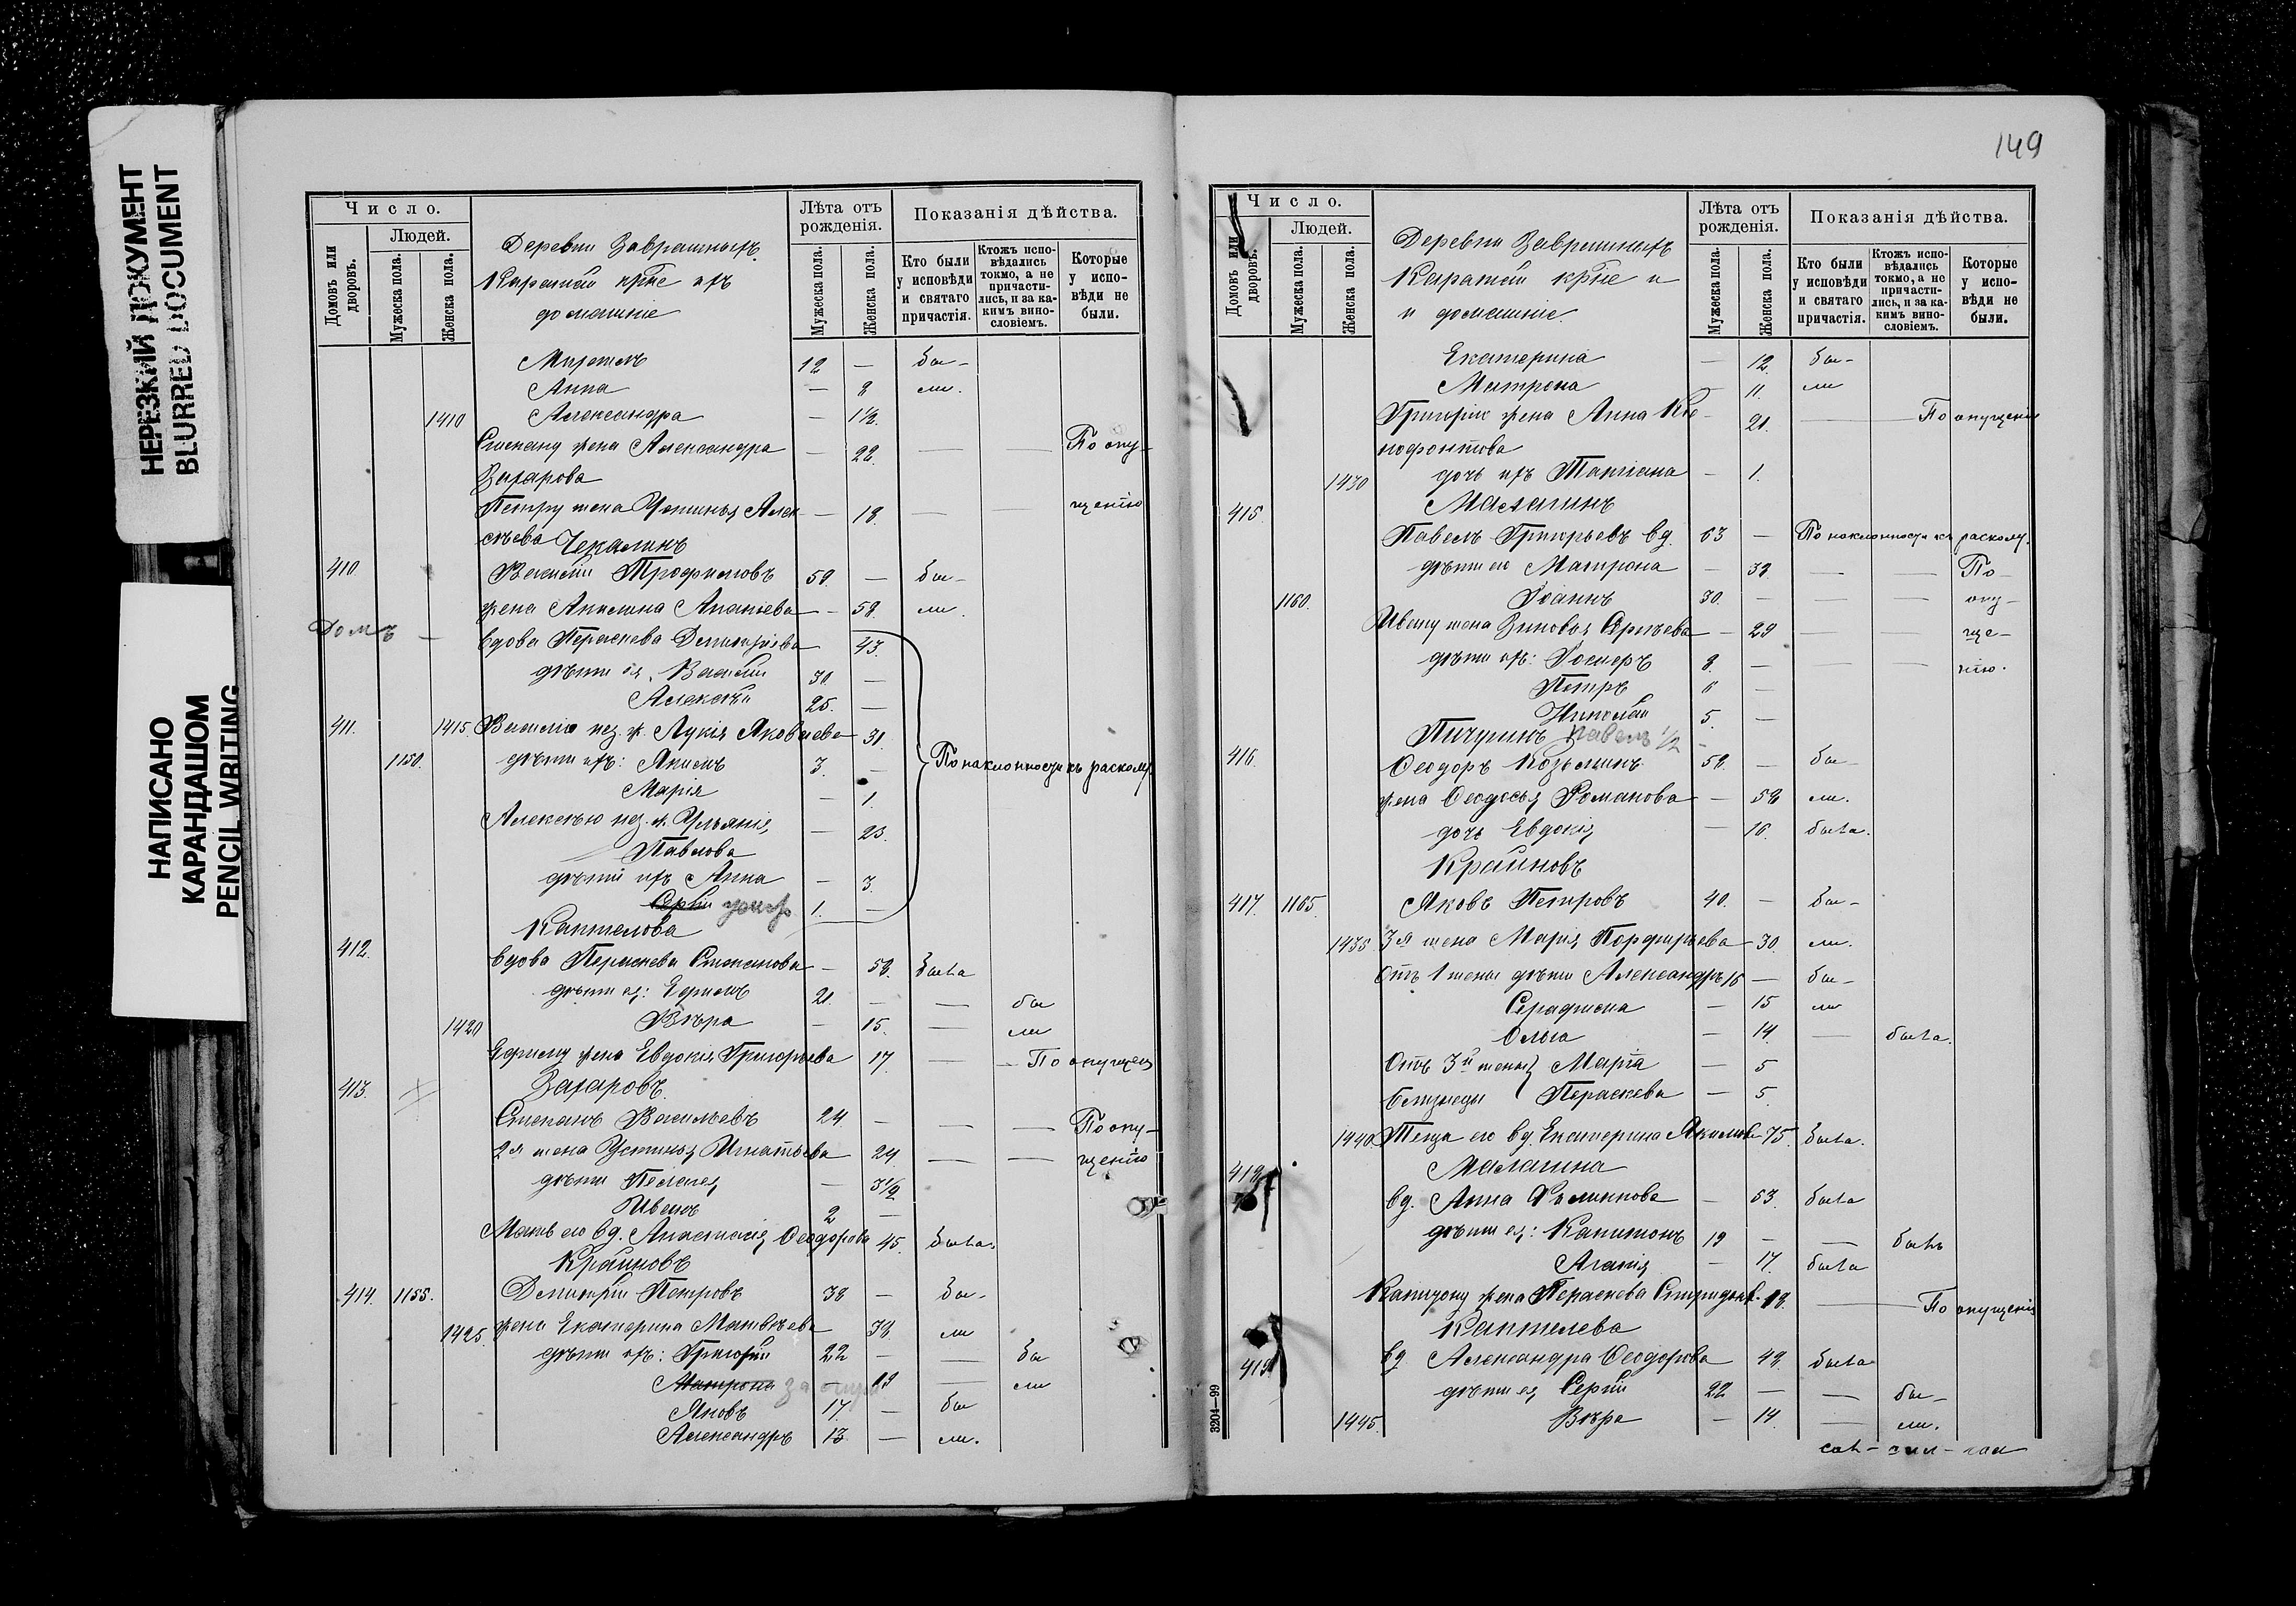 НЕРЕЗКИЙ ДОКУМЕНТ
BLURRED DOCUMENT
НАПИСАНО
КАРАНДАШОМ
PENCIL WRITING
Число.
Людей.
Домовъ или дворовъ.
Мужеска пола.
Женска пола.
Деревни
домашніе
Лѣта отъ рожденія.
Мужеска пола.
Женска пола.
Показанія дѣйства.
Кто были у исповѣди и святаго причастія.
Ктожъ исповѣдались токмо, а не причастились, и за какимъ винословіемъ.
Которые у исповѣди не были.
12 — бы-
Анна — 8 ли.
1410 Александра — 1½
Степану жена Александра — 22. — — По опу-
Захарова
Петру жена Устинья Алек- — 18. — — щенію
сѣева
410. Василій Трофимовъ 59. — бы-
жена Акилина Ананіева — 58. ли.
Домъ — вдова Параскева Димитріева 43.
дѣти ея, Василій 30 —
Алексѣй 25. —
411. 1415. Василію нез. ж. Лукія Яковлева 31.
1150. дѣти ихъ: Акимъ 3. —
Марія — 1.
По наклонности къ расколу.
Алексѣю нез. ж. Ульянія — 23.
Павлова
дѣти ихъ Анна — 3.
Сергій умеръ 1. —
Каптелова
412. вдова Параскева Степанова — 58. была
дѣти ея: Ефимъ 21. — — бы
1420 Вѣра — 15. — ли
Ефиму жена Евдокія Григорьева 17. — — По опущен
413. Захаровъ.
Степанъ Васильевъ 24. — — — По опу-
2я жена Устинья Игнатьева 24. — — щенію
дѣти Пелагея — 3½
Иванъ 2 —
Мать его вд. Анастасія Ѳеодорова 45. была.
Крайновъ
414. 1155. Димитрій Петровъ 38 — бы-
1425. жена Екатерина Матвѣева 38. ли
дѣти ихъ: Григорій 22 — — бы
Матрона — 19 — ли
Яковъ 17. — бы
Александръ 13. — ли.
149
Число.
Людей.
Домовъ или дворовъ.
Мужеска пола.
Женска пола.
Деревни
и домашніе.
Лѣта отъ рожденія.
Мужеска пола.
Женска пола.
Показанія дѣйства.
Кто были у исповѣди и святаго причастія.
Ктожъ исповѣдались токмо, а не причастились, и за какимъ винословіемъ.
Которые у исповѣди не были.
Екатерина — 12. бы-
Матрона — 11. ли
Григорію жена Анна Ксе- — 21. — — По опущенію
нофонтова
1430 дочь ихъ Татіана — 1.
415. Малагинъ
Павелъ Григорьевъ вд. 63 — По наклонности къ расколу.
дѣти его Матрона — 38. — — По-
1160. Іоаннъ 30. — — — опу-
Ивану жена Зиновья Сергѣева — 29 — — ще-
дѣти ихъ: 8. — — — нію.
Петръ 6 —
Николай 5. —
Пичугинъ Павелъ ½
416. Ѳеодоръ Козьминъ 58. — бы-
жена Ѳеодосья Романова — 58 ли.
дочь Евдокія — 16. была.
Крайновъ
417. 1165. Яковъ Петровъ 40. — бы-
1435. 3я жена Марія Порфирьева 30. ли.
Отъ 1 жены дѣти Александръ 16 — бы-
Серафима — 15 ли
Ольга — 14 — была.
Отъ 3й жены Марія — 5
близнецы Параскева — 5.
1440. Теща его вд. Екатерина Акимова 75. была.
418. Малагина
вд. Анна Филиппова — 53. была
дѣти ея: Капитонъ 19 — — былъ
Агапія — 17. была
Капитону жена Параскева Спиридон. 18. — — По опущенію
Каптелева
419 вд. Александра Ѳеодорова 48. была
дѣти ея Сергій 22 — — бы-
1445. Вѣра — 14. — ли.
3204—99